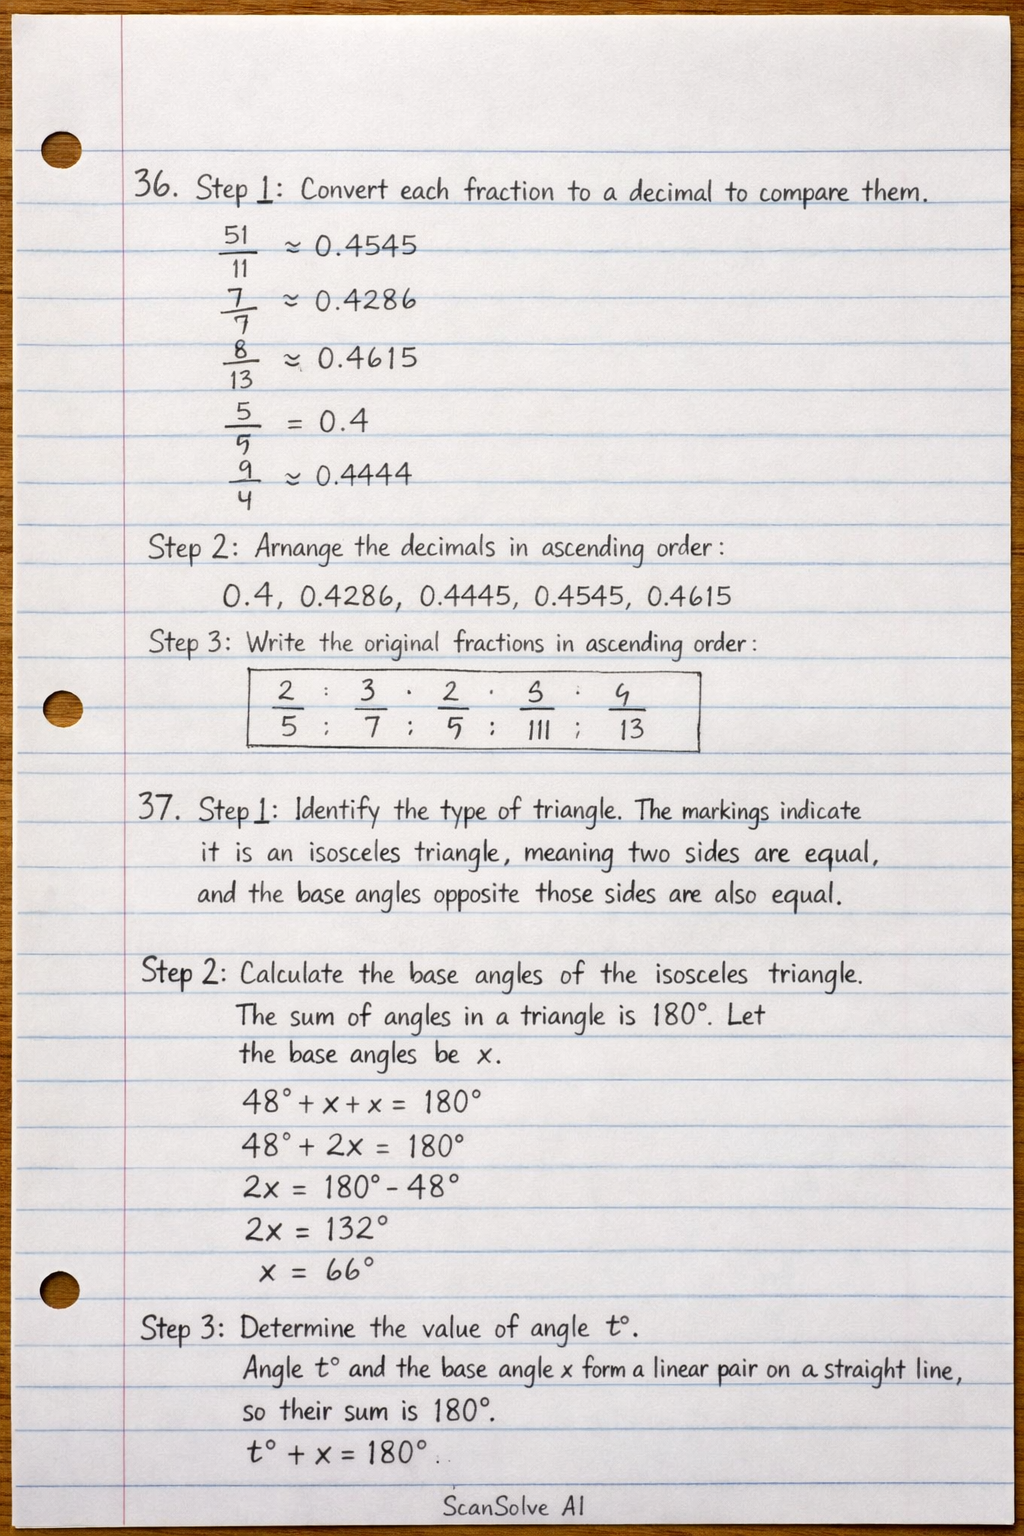 36. Step 1: Convert each fraction to a decimal to compare them.
51/11 ≈ 0.4545
7/7 ≈ 0.4286
8/13 ≈ 0.4615
5/5 = 0.4
9/4 ≈ 0.4444
Step 2: Arnange the decimals in ascending order:
0.4, 0.4286, 0.4445, 0.4545, 0.4615
Step 3: Write the original fractions in ascending order:
2 : 3 · 2 · 5 : 9
5 ; 7 ; 5 : 111 ; 13
37. Step 1: Identify the type of triangle. The markings indicate
it is an isosceles triangle, meaning two sides are equal,
and the base angles opposite those sides are also equal.
Step 2: Calculate the base angles of the isosceles triangle.
The sum of angles in a triangle is 180°. Let
the base angles be x.
48° + x + x = 180°
48° + 2x = 180°
2x = 180° - 48°
2x = 132°
x = 66°
Step 3: Determine the value of angle t°.
Angle t° and the base angle x form a linear pair on a straight line,
so their sum is 180°.
t° + x = 180°..
ScanSolve AI